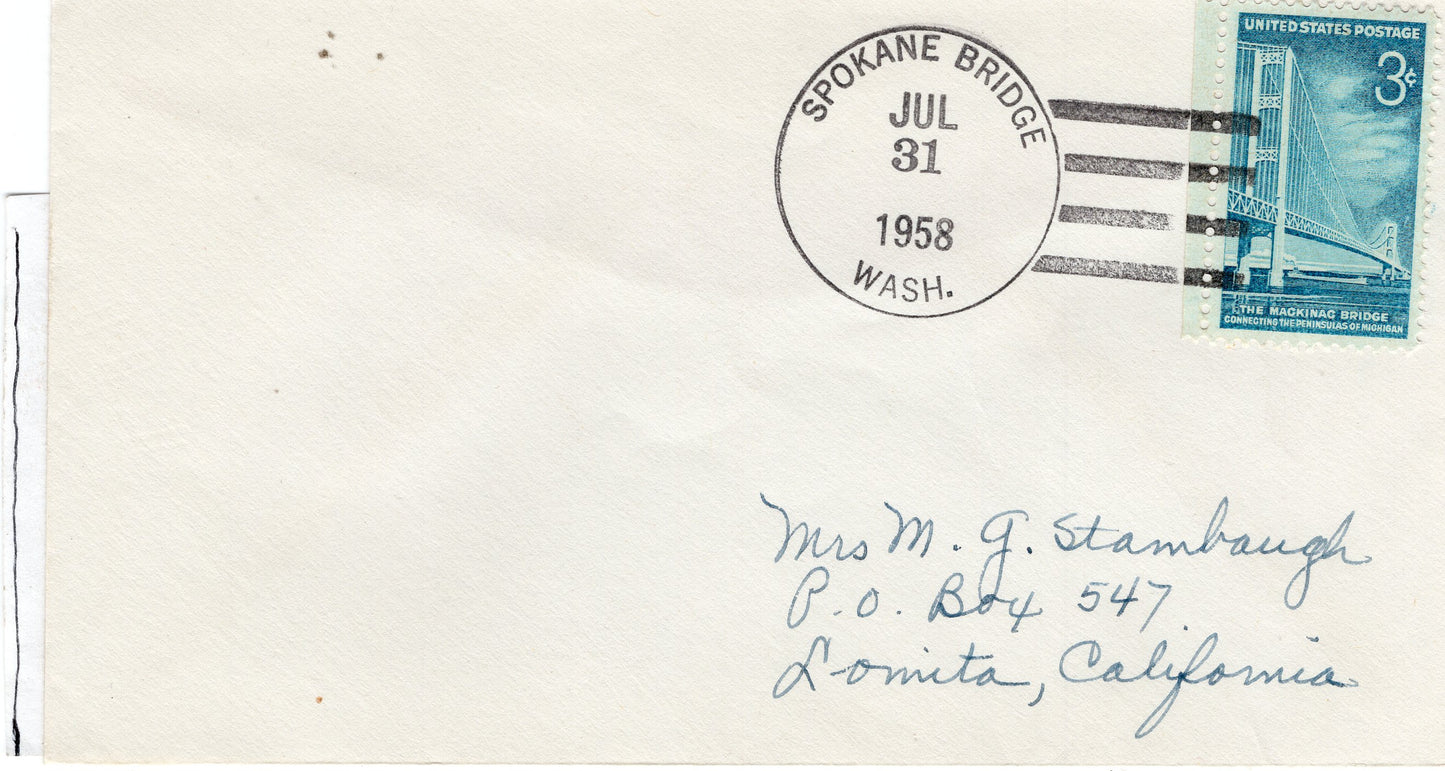 SPOKANE BRIDGE
JUL
31
1958
WASH.
UNITED STATES POSTAGE
3¢
THE MACKINAC BRIDGE
CONNECTING THE PENINSULAS OF MICHIGAN
Mrs M. G. Stambaugh
P.O. Box 547
Lomita, California